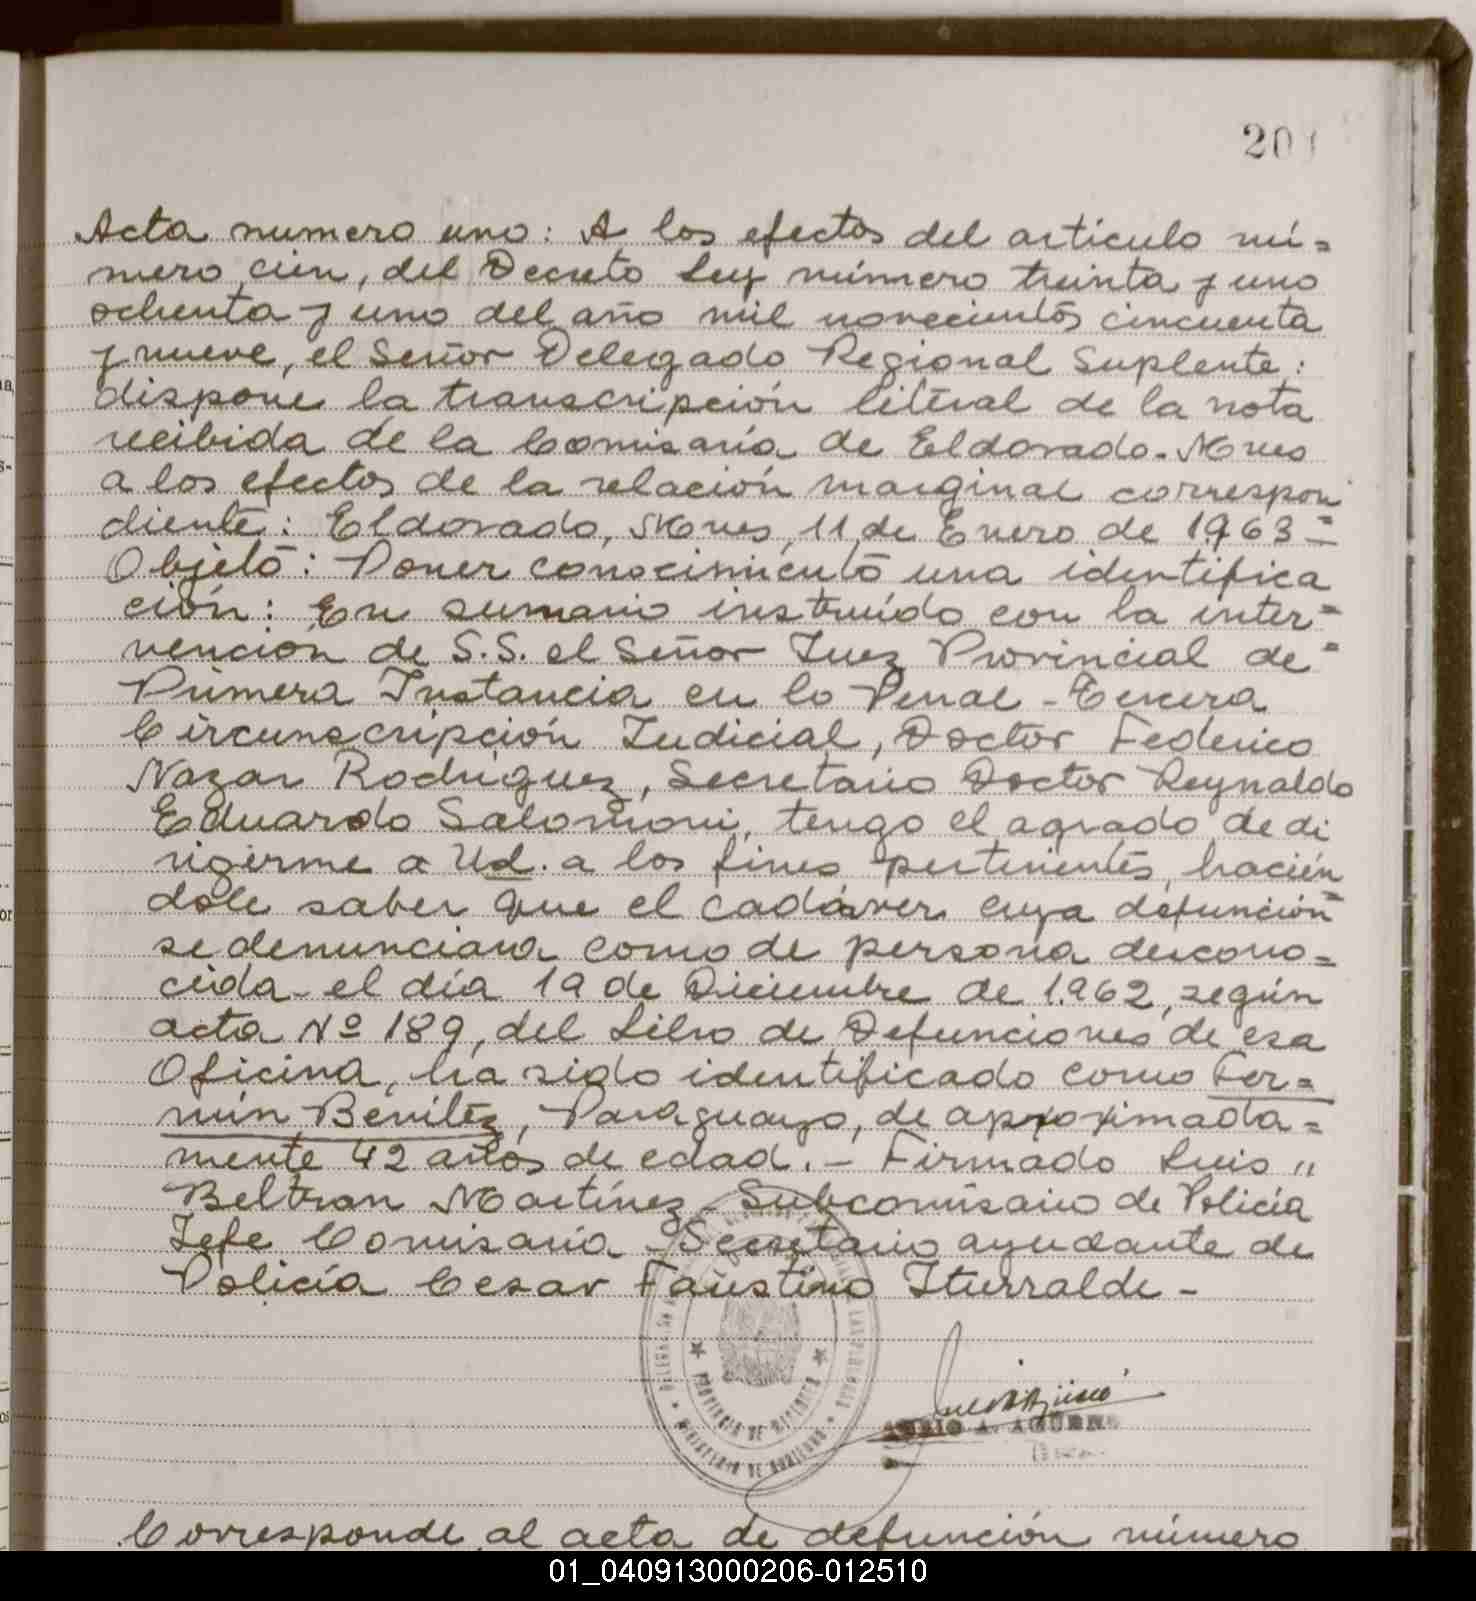 201
Acta numero uno: A los efectos del articulo nú=
mero cien, del Decreto Ley número treinta y uno
ochenta y uno del año mil novecientos cincuenta
y nueve, el Señor Delegado Regional Suplente:
dispone la transcripción literal de la nota
recibida de la Comisaría de Eldorado. Mnes
a los efectos de la relación marginal correspon
diente: Eldorado, Mnes, 11 de Enero de 1963=
Objeto: Poner conocimiento una identifica
ción: En sumario instruído con la inter=
vención de S.S. el Señor Juez Provincial de=
Primera Instancia en lo Penal - Tercera
Circunscripción Judicial, Doctor Federico
Nazar Rodriguez, Secretario Doctor Reynaldo
Eduardo Salomoni, tengo el agrado de di
rigirme a Ud. a los fines pertinentes, hacién
dole saber que el cadáver cuya defunción=
se denunciara como de persona descono=
cida el día 19 de Diciembre de 1.962, según
acta Nº 189, del Libro de Defunciones de esa
Oficina, ha sido identificado como Fer=
min Benítez, Paraguayo, de aproximada=
mente 42 años de edad. - Firmado Luis "
Beltran Martínez - Subcomisario de Policía
Jefe Comisaría - Secretario ayudante de
Policía Cesar Faustino Iturralde -
PROVINCIA DE MISIONES
MINISTERIO DE GOBIERNO
A. AGUIRRE
Corresponde al acta de defunción número
01_040913000206-012510